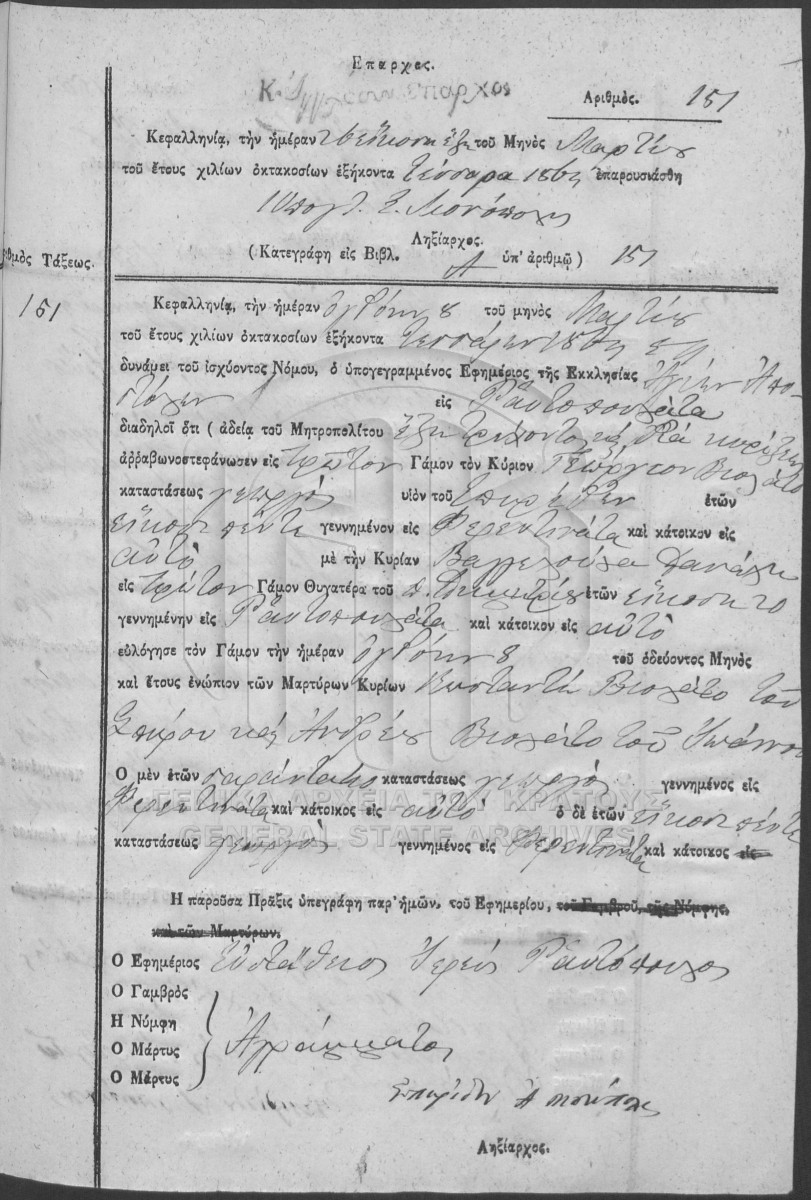 Επαρχος.
Κ. επαρχος Αριθμός. 151
Κεφαλληνίᾳ, τὴν ἡμέραν εἴκοση ἕξη τοῦ Μηνὸς Μαρτίου
τοῦ ἔτους χιλίων ὀκτακοσίων ἑξήκοντα τέσσαρα 1864 ἐπαρουσιάσθη
Ληξίαρχος.
( Κατεγράφη εἰς Βιβλ. Α ὑπ' ἀριθμῷ ) 151
Ἀριθμὸς Τάξεως.
151
Κεφαλληνίᾳ, τὴν ἡμέραν ὀγδόην 8 τοῦ μηνὸς Μαρτίου
τοῦ ἔτους χιλίων ὀκτακοσίων ἑξήκοντα τεσσάρων 1864
δυνάμει τοῦ ἰσχύοντος Νόμου, ὁ ὑπογεγραμμένος Ἐφημέριος τῆς Ἐκκλησίας Ἁγίων Ἀπο-
στόλων εἰς Ραυτοπουλάτα
διαδηλοῖ ὅτι ( ἀδείᾳ τοῦ Μητροπολίτου
ἀῤῥαβωνοστεφάνωσεν εἰς πρῶτον Γάμον τὸν Κύριον Γεώργιον Βιολάτο
καταστάσεως γεωργὸς υἱὸν τοῦ Σπυρίδων ἐτῶν
εἴκοσι πέντε γεννημένον εἰς Φερεντινάτα καὶ κάτοικον εἰς
αὐτὸ μὲ τὴν Κυρίαν Βαγγελούλα
εἰς πρῶτον Γάμον Θυγατέρα τοῦ π. Δημητρίου ἐτῶν εἴκοση το
γεννημένην εἰς Ραυτοπουλάτα καὶ κάτοικον εἰς αὐτὸ
εὐλόγησε τὸν Γάμον τὴν ἡμέραν ὀγδόην 8 τοῦ ὁδεύοντος Μηνὸς
καὶ ἔτους ἐνώπιον τῶν Μαρτύρων Κυρίων Κοσταντῆ Βιολάτο τοῦ
Σπύρου καὶ Ἀνδρέα Βιολάτο τοῦ Ἰωάννου
Ὁ μὲν ἐτῶν σαράντα καταστάσεως γεωργὸς γεννημένος εἰς
Φερεντινάτα καὶ κάτοικος εἰς αὐτὸ ὁ δὲ ἐτῶν εἴκοσι πέντε
καταστάσεως γεωργὸς γεννημένος εἰς Φερεντινάτα καὶ κάτοικος εἰς
ΓΕΝΙΚΑ ΑΡΧΕΙΑ ΤΟΥ ΚΡΑΤΟΥΣ
GENERAL STATE ARCHIVES
Ἡ παροῦσα Πρᾶξις ὑπεγράφη παρ' ἡμῶν, τοῦ Ἐφημερίου, τοῦ Γαμβροῦ, τῆς Νύμφης,
καὶ τῶν Μαρτύρων.
Ὁ Ἐφημέριος Εὐστάθειος Ἱερεὺς Ραυτόπουλος
Ὁ Γαμβρὸς
Ἡ Νύμφη
Ὁ Μάρτυς Ἀγράμματος
Ὁ Μάρτυς
Σπυρίδων
Ληξίαρχος.